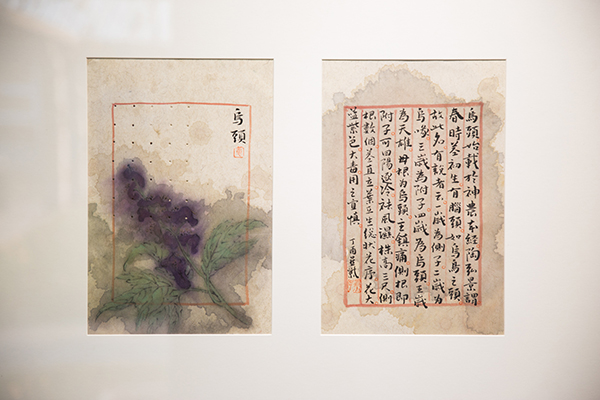 烏頭
烏頭始載於神農本經陶弘景謂
春時莖初生有腦頭如烏鳥之頭
故此名有說者云一歲為側子二歲為
烏喙三歲為附子四歲為烏頭五歲
為天雄母根為烏頭主鎮痛側根即
附子可回陽逐冷祛風濕株高三尺側
根數個莖直立葉互生總狀花序花大
藍紫色大毒用之宜慎
丁酉